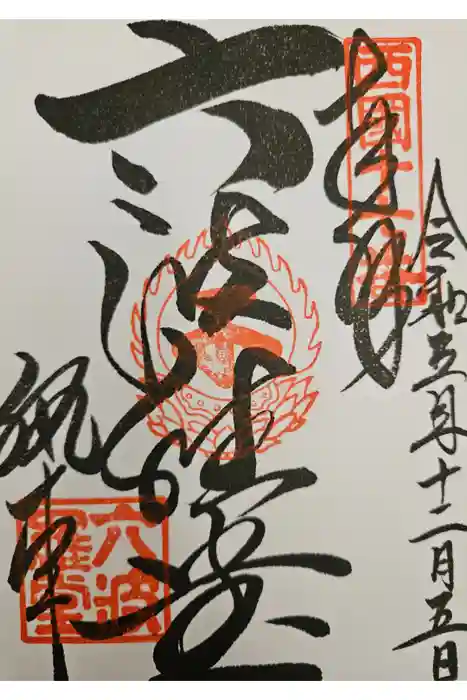 令和五年十二月五日
奉拝
西國十七番
六波羅堂
執事
六波
羅堂